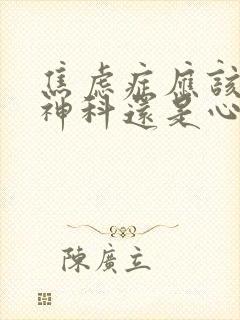 焦虑症應該
神科還是心
陳廣立